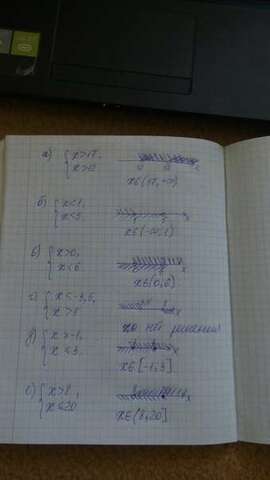 а) { x>17,
x>12
x∈(17,+∞)
б) { x<1,
x<5
x∈(-∞,1)
в) { x>0,
x≤6
x∈(0,6]
г) { x<-3,5,
x>8
нет решений
д) { x≥-1,
x≤3
x∈[-1,3]
е) { x>8,
x≤20
x∈(8,20]